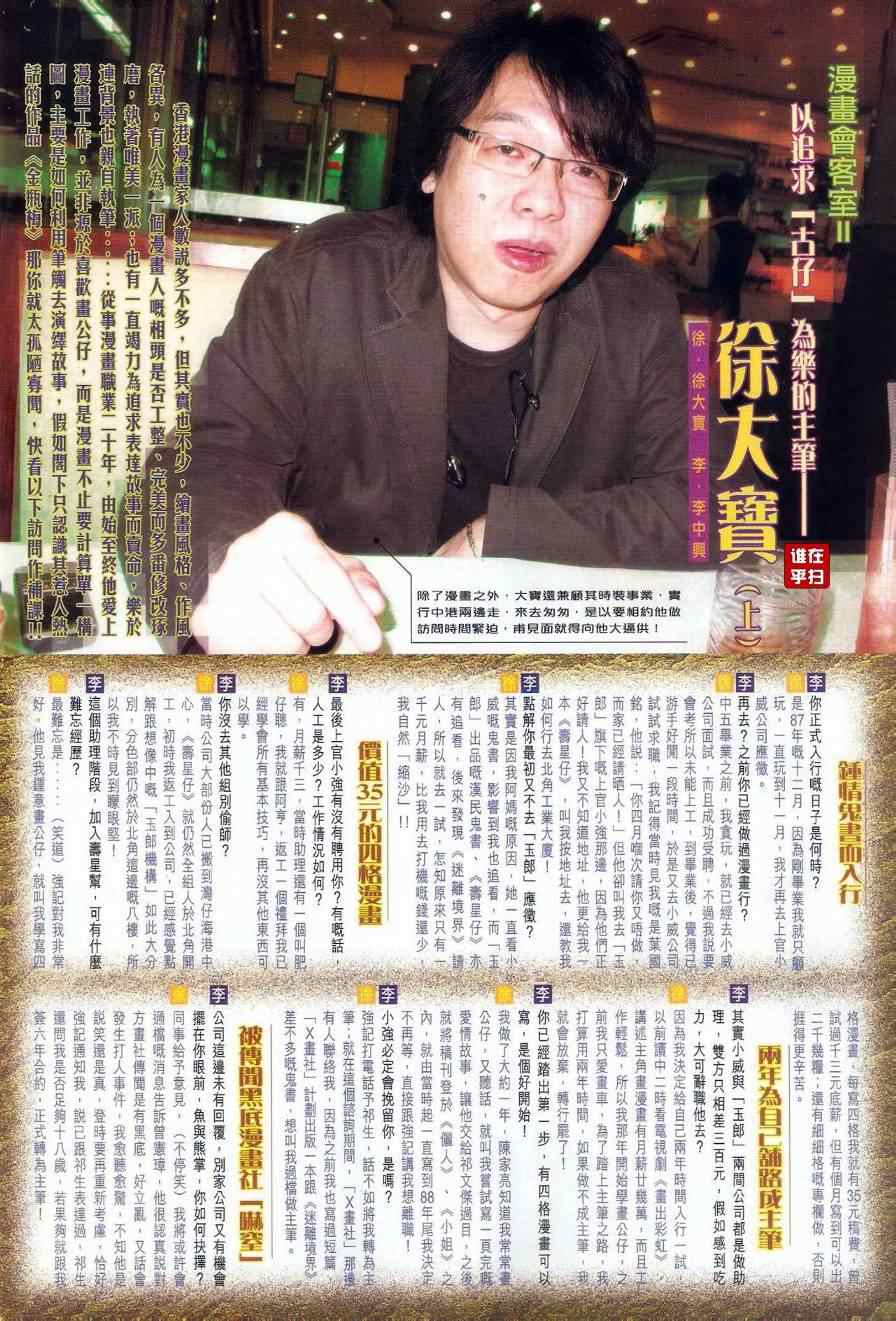 漫畫會客室II
以追求「古仔」為樂的主筆——
徐大寶(上)
徐．徐大寶　李．李中興
谁在
乎扫
香港漫畫家人數說多不多，但其實也不少，繪畫風格、作風
各異，有人為一個漫畫人嘅相頭是否工整、完美而多番修改琢
磨，執著唯美一派；也有一直竭力為追求表達故事而賣命，樂於
連背景也親自執筆……從事漫畫職業二十年，由始至終他愛上
漫畫工作，並非源於喜歡畫公仔，而是漫畫不止要計算單一構
圖，主要是如何利用筆觸去演繹故事，假如閣下只認識其惹人熱
話的作品《金瓶梅》那你就太孤陋寡聞，快看以下訪問作補課！！
除了漫畫之外，大寶還兼顧其時裝事業，實
行中港兩邊走，來去匆匆，是以要相約他做
訪問時間緊迫，甫見面就得向他大逼供！
鍾情鬼書而入行
李 你正式入行嘅日子是何時？
徐 是87年嘅十二月，因為剛畢業我就只顧
玩，一直玩到十一月，我才再去上官小
威公司應徵。
李 再去？之前你已經做過漫畫行？
徐 中五畢業之前，我貪玩，就已經去小威
公司面試，而且成功受聘，不過我說要
會考所以未能上工，到畢業後，覺得已
游手好閒一段時間，於是又去小威公司
試試求職，我記得當時見我嘅是葉國
銘，他說：「你四月嗰次請你又唔做，
而家已經請晒人！」但他卻叫我去「玉
郎」旗下嘅上官小強那邊，因為他們正
好請人！我又不知道地址，他更給我一
本《壽星仔》，叫我按地址去，還教我
如何行去北角工業大廈！
李 點解你最初又不去「玉郎」應徵？
徐 其實是因我阿媽嘅原因，她一直看小
威嘅鬼書，影響到我也追看，而「玉
郎」出品嘅漢民鬼書、《壽星仔》亦
有追看，後來發現《迷離境界》請
人，所以就去一試，怎知原來只有一
千元月薪，比我用去打機嘅錢還少，
我自然「縮沙」！！
價值35元的四格漫畫
李 最後上官小強有沒有聘用你？有嘅話，
人工是多少？工作情況如何？
徐 有，月薪千三，當時助理還有一個叫肥
仔聰，我就跟阿亨，返工一個禮拜我已
經學會所有基本技巧，再沒其他東西可
以學。
李 你沒去其他組別偷師？
徐 當時公司大部份人已搬到灣仔海港中
心，《壽星仔》就仍然全組人於北角開
工，初時我返工入到公司，已經感覺點
解跟想像中嘅「玉郎機構」如此大分
別，分色部仍然於北角這邊嘅八樓，所
以我不時見到矇眼堅！
李 這個助理階段，加入壽星幫，可有什麼
難忘經歷？
徐 最難忘是……（笑道）強記對我非常
好，他見我鍾意畫公仔，就叫我學寫四
格漫畫，每寫四格我就有35元稿費，曾
試過千三元底薪，但有個月寫到可以出
二千幾糧；還有細細格嘅專欄做，否則
捱得更辛苦。
兩年為自己舖路成主筆
李 其實小威與「玉郎」兩間公司都是做助
理，雙方只相差三百元，假如感到吃
力，大可辭職他去？
徐 因為我決定給自己兩年時間入行一試，
以前讀中二時看電視劇《畫出彩虹》，
講述主角畫漫畫有月薪廿幾萬，而且工
作輕鬆，所以我那年開始學畫公仔，之
前我只愛畫車，為了踏上主筆之路，我
打算用兩年時間，如果做不成主筆，我
就會放棄，轉行罷了！
李 你已經踏出第一步，有四格漫畫可以
寫，是個好開始！
徐 我做了大約一年，陳家亮知道我常常畫
公仔，又聽話，就叫我嘗試寫一頁完嘅
愛情故事，讓他交給祁文傑過目，之後
就將稿刊登於《儷人》、《小姐》之
內，就由當時起一直寫到88年尾我決定
不再等，直接跟強記講我想離職！
李 小強必定會挽留你，是嗎？
徐 強記打電話予祁生，話不如將我轉為主
筆；就在這個諮詢期間，「X畫社」那邊
有人聯絡我，因為之前我也寫過短篇，
「X畫社」計劃出版一本跟《迷離境界》
差不多嘅鬼書，想叫我過檔做主筆。
被傳聞黑底漫畫社「嚇窒」
李 公司這邊未有回覆，別家公司又有機會
擺在你眼前，魚與熊掌，你如何抉擇？
徐 同事給予意見，（不停笑）我將或許會
過檔嘅消息告訴曾憲瑋，他很認真說對
方畫社傳聞是有黑底，好立亂，又話會
發生打人事件，我愈聽愈驚，不知他是
說笑還是真，登時要再重新考慮，恰好
強記通知我，說已跟祁生表達過，祁生
還問我是否足夠十八歲，若果夠就跟我
簽六年合約，正式轉為主筆！